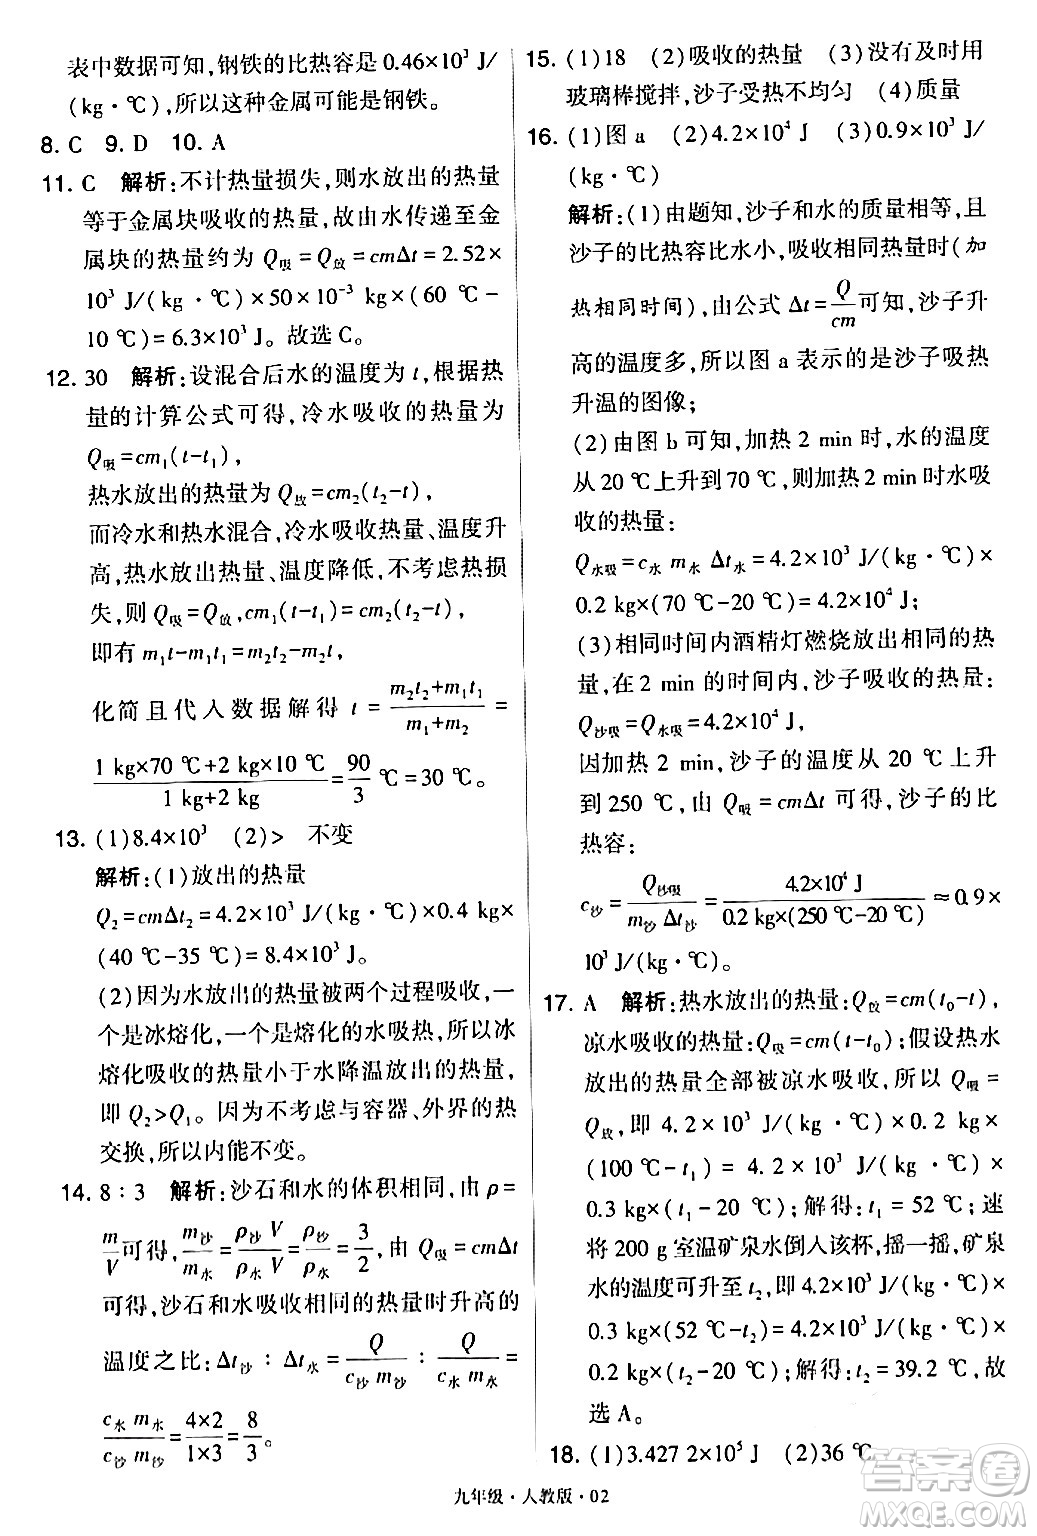 表中数据可知,钢铁的比热容是0.46×10³ J/
(kg·℃),所以这种金属可能是钢铁。
8. C 9. D 10. A
11. C 解析:不计热量损失,则水放出的热量
等于金属块吸收的热量,故由水传递至金
属块的热量约为 Q吸=Q放=cmΔt=2.52×
10³ J/(kg·℃)×50×10⁻³ kg×(60 ℃-
10 ℃)=6.3×10³ J。故选 C。
12. 30 解析:设混合后水的温度为 t,根据热
量的计算公式可得,冷水吸收的热量为
Q吸=cm₁(t-t₁),
热水放出的热量为 Q放=cm₂(t₂-t),
而冷水和热水混合,冷水吸收热量、温度升
高,热水放出热量、温度降低,不考虑热损
失,则 Q吸=Q放,cm₁(t-t₁)=cm₂(t₂-t),
即有 m₁t-m₁t₁=m₂t₂-m₂t,
化简且代入数据解得 t=(m₂t₂+m₁t₁)/(m₁+m₂)=
(1 kg×70 ℃+2 kg×10 ℃)/(1 kg+2 kg)=90/3 ℃=30 ℃。
13. (1)8.4×10³ (2)> 不变
解析:(1)放出的热量
Q₂=cmΔt₂=4.2×10³ J/(kg·℃)×0.4 kg×
(40 ℃-35 ℃)=8.4×10³ J。
(2)因为水放出的热量被两个过程吸收,一
个是冰熔化,一个是熔化的水吸热,所以冰
熔化吸收的热量小于水降温放出的热量,
即 Q₂>Q₁。因为不考虑与容器、外界的热
交换,所以内能不变。
14. 8∶3 解析:沙石和水的体积相同,由 ρ=
m/V可得,m沙/m水=ρ沙V/ρ水V=ρ沙/ρ水=3/2,由 Q吸=cmΔt
可得,沙石和水吸收相同的热量时升高的
温度之比:Δt沙∶Δt水=Q/(c沙m沙)∶Q/(c水m水)=
c水m水/c沙m沙=(4×2)/(1×3)=8/3。
15. (1)18 (2)吸收的热量 (3)没有及时用
玻璃棒搅拌,沙子受热不均匀 (4)质量
16. (1)图 a (2)4.2×10⁴ J (3)0.9×10³ J/
(kg·℃)
解析:(1)由题知,沙子和水的质量相等,且
沙子的比热容比水小,吸收相同热量时(加
热相同时间),由公式 Δt=Q/cm可知,沙子升
高的温度多,所以图 a 表示的是沙子吸热
升温的图像;
(2)由图 b 可知,加热 2 min 时,水的温度
从 20 ℃上升到 70 ℃,加热 2 min 时水吸
收的热量:
Q水吸=c水 m水 Δt水=4.2×10³ J/(kg·℃)×
0.2 kg×(70 ℃-20 ℃)=4.2×10⁴ J;
(3)相同时间内酒精灯燃烧放出相同的热
量,在 2 min 的时间内,沙子吸收的热量:
Q沙吸=Q水吸=4.2×10⁴ J,
因加热 2 min,沙子的温度从 20 ℃上升
到 250 ℃,由 Q吸=cmΔt 可得,沙子的比
热容:
c沙=Q沙吸/(m沙Δt沙)=4.2×10⁴ J/(0.2 kg×(250 ℃-20 ℃))≈0.9×
10³ J/(kg·℃)。
17. A 解析:热水放出的热量:Q放=cm(t₀-t),
凉水吸收的热量:Q吸=cm(t-t₀);假设热水
放出的热量全部被凉水吸收,所以 Q吸=
Q放,即 4.2×10³ J/(kg·℃)×0.2 kg×
(100 ℃-t₁)=4.2×10³ J/(kg·℃)×
0.3 kg×(t₁-20 ℃);解得:t₁=52 ℃;速
将 200 g 室温矿泉水倒入该杯,摇一摇,矿泉
水的温度可升至 t₂,即 4.2×10³ J/(kg·℃)×
0.3 kg×(52 ℃-t₂)=4.2×10³ J/(kg·℃)×
0.2 kg×(t₂-20 ℃);解得:t₂=39.2 ℃,故
选 A。
18. (1)3.427 2×10⁵ J (2)36 ℃
九年级·人教版·02
答案圈
MXQE.COM